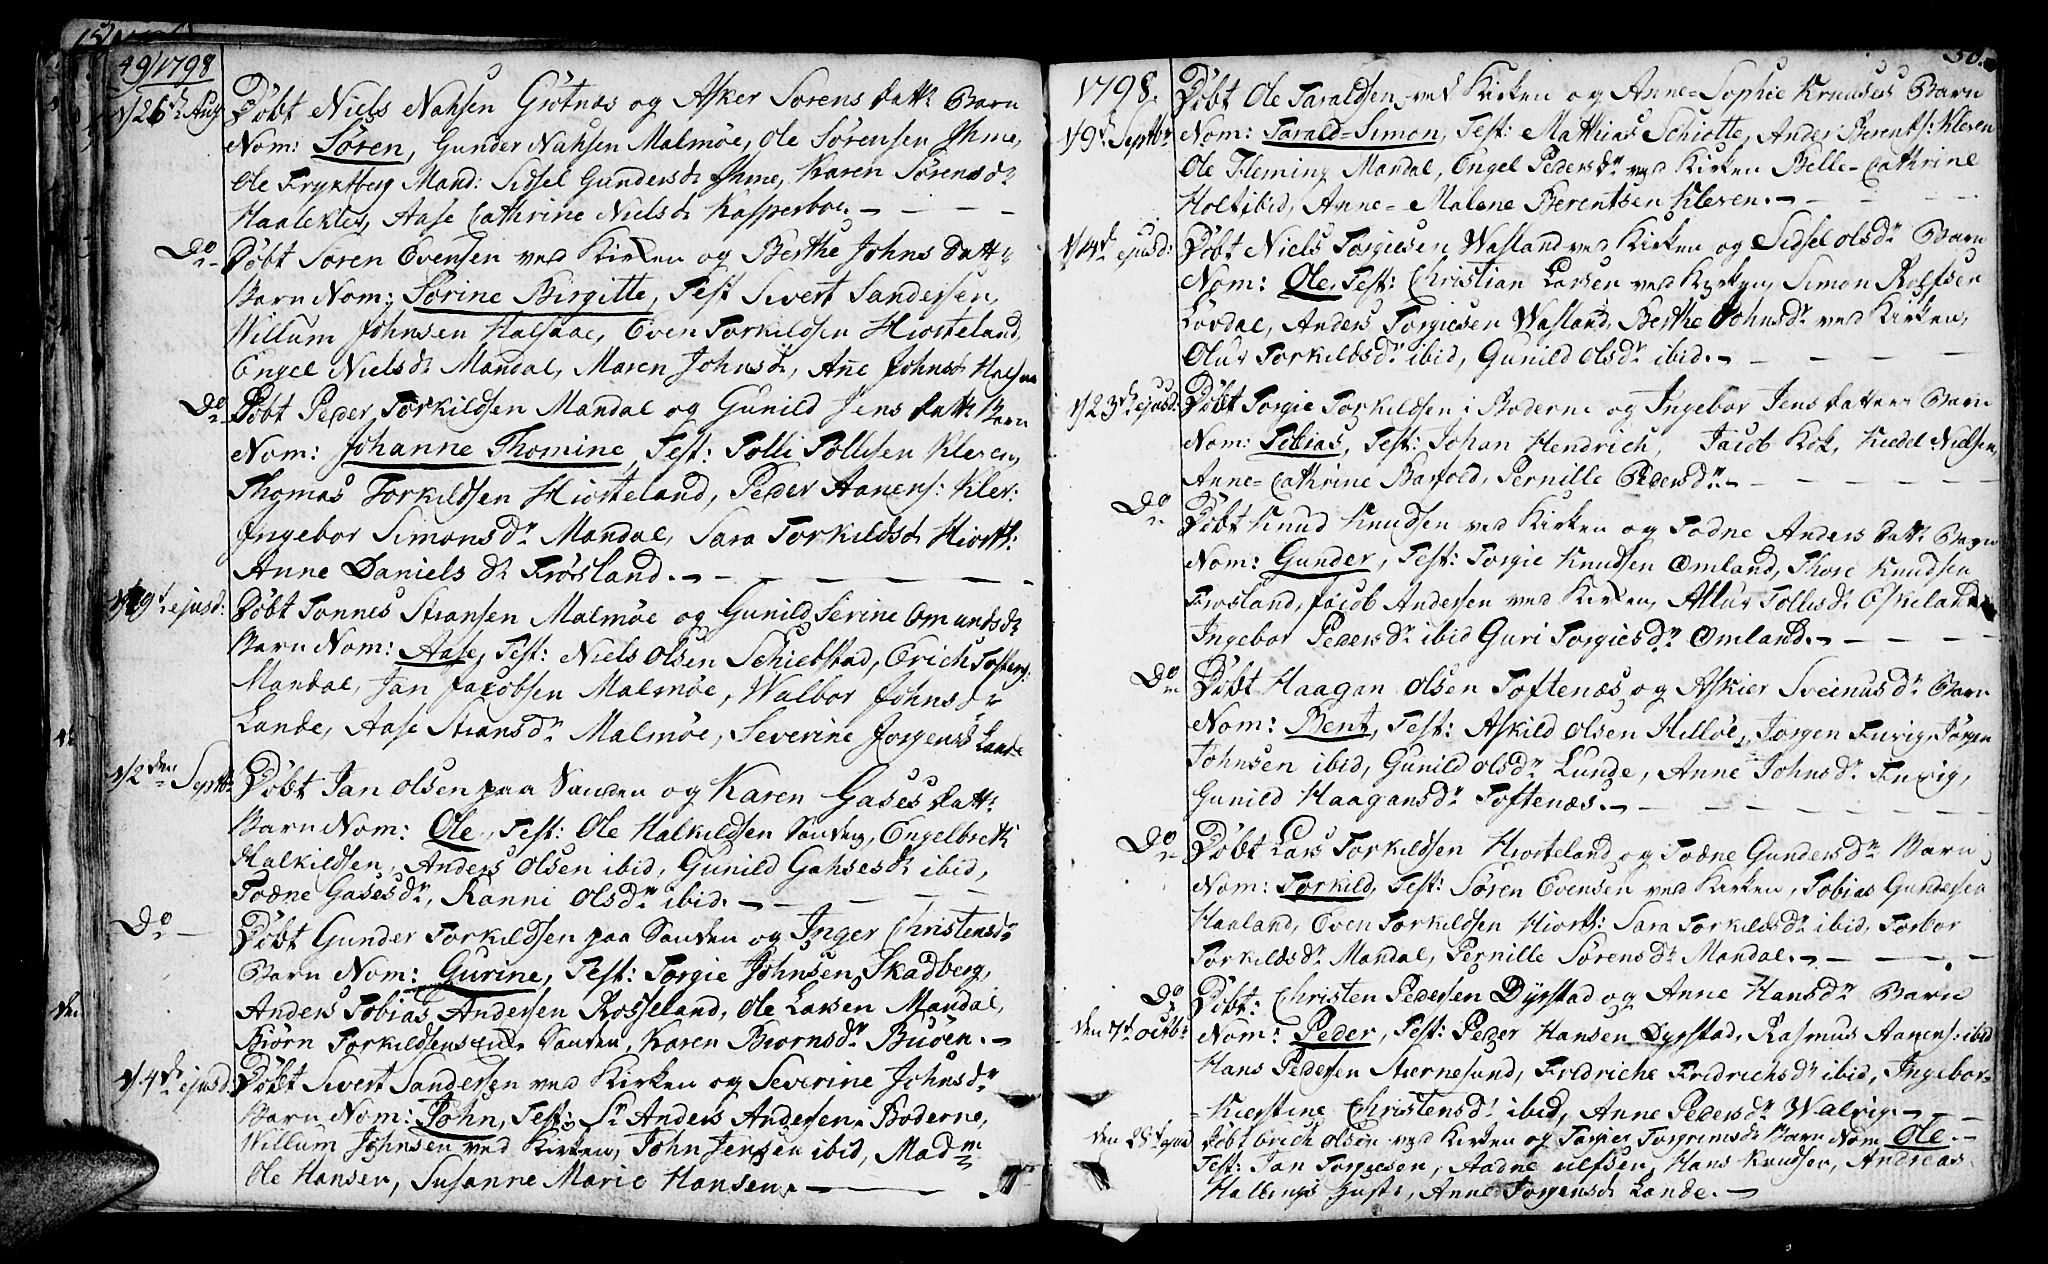 49/1798
d/26de Aug Döbt Niels Nahsen Grötnæs og Asker Sörens Datt: Barn
Nom: Sören, Gunder Nahsen Malmöe, Ole Sörensen Ihme,
Ole Fryktberg Mand: Sidsel Gundersd: Ihme, Karen Sörensdr
Haalekler, Aase Cathrine Nielsd: Kasperboe. —
Do Döbt Sören Evensen ved Kirken og Berthe Johns Datt:
Barn Nom: Sörine Birgitte, Test Sivert Sandersen,
Willum Johnsen Halsaae, Even Torkildsen Hiorteland,
Engel Nielsd: Mandal, Maren Johnsd:, Añe Johnsd:
Do Döbt Peder Torkildsen Mandal og Gunild Jens Datt: Barn
Nom: Johanne Thomine, Test: Tolli Tollisen Kleven,
Thomas Torkildsen Hiorteland, Peder Aanens: Klev:
Ingebor Simonsdr Mandal, Sara Torkildsd: Hiorth:
Anne Daniels d: Frösland. —
ejusd: Döbt Tönnes Stransen Malmöe og Gunild Serine Omundsdr
Barn Nom: Aase, Test: Niels Olsen Schiebstad, Erich Tostens:
Mandal, Jan Jacobsen Malmöe, Walbor Johnsdr
Lande, Aase Stransdr Malmöe, Severine Jorgensd: Lande
d/2den Septbr Döbt Jan Olsen paa Sanden og Karen Gases Datt:
Barn Nom: Ole, Test: Ole Halkildsen Sanden, Engelbrett
Halkildsen, Anders Olsen ibid, Gunild Gahsesd: ibid,
Todne Gasesdr, Ranni Olsdr ibid. —
Do — Döbt Gunder Torkildsen paa Sanden og Inger Christensdr
Barn Nom: Gurine, Test: Torgie Johnsen Skadberg,
Anders Tobias Andersen Rosseland, Ole Larsen Mandal,
Biörn Torkildsen Sanden, Karen Biornsdr Buöen. —
d/4de ejusd: Döbt Sivert Sandersen ved Kirken og Severine Johnsdr
Barn Nom: John, Test: Sr Anders Andersen i Boderne,
Willum Johnsen ved Kirken, John Jensen ibid, Madm
Ole Hansen, Susanne Marie Hansen. —
1798.
50.
d/9de Septbr Döbt Ole Taraldsen ved Kirken og Anne-Sophie Knudses Barn
Nom: Tarald-Simon, Test: Matthias Schiötte, Ander Berents: Kleven
Ole Fleming Mandal, Engel Pedersdr ved Kirken Belle-Cathrine
Holt ibid, Anne-Malene Berentsen Kleven. —
d/4de ejusd: Döbt Niels Torgiesen Wasland ved Kirken og Sidsel Olsdr Barn
Nom: Ole, Test: Christian Larsen ved Kirken, Simon Rolfsen
Lovdal, Anders Torgiesen Wasland, Berthe Johnsdr ved Kirken,
Olur Torkildsdr ibid, Gunild Olsdr ibid. —
d/23de ejusd: Döbt Torgie Torkildsen i Boderne og Ingebor Jens datters Barn
Nom: Tobias, Test: Johan Hendrich, Jacob Kok, Kiedel Nielsen,
Anne-Cathrine Barfold, Pernille Pedersdr —
Do Döbt Knud Knudsen ved Kirken og Todne Anders datt: Barn
Nom: Gunder, Test: Torgie Knudsen Omland, Thore Knudsen
Frosland, Jacob Andersen ved Kirken, Allur Tollisd: Eskeland,
Ingebor Pedersdr ibid Guri Torgiesdr Omland. —
Do Döbt Haagan Olsen Toftenæs og Askier Sveinusdr Barn
Nom: Bent, Test: Askild Olsen Hilloe, Jorgen Furig, Jörgen
Johnsen ibid, Gunild Olsdr Lunde, Anne Johnsdr Furig,
Gunild Haagansdr Toftenæs. —
Do Döbt Lars Torkildsen Hiorteland og Todne Gundersdr Barn
Nom: Torkild, Test: Sören Evensen ved Kirken, Tobias Gundersen
Haaland, Even Torkildsen Hiorth: Sara Torkildsdr ibid, Torbor
Torkildsdr Mandal, Pernille Sörensdr Mandal. —
Do Döbt: Christen Pedersen Dyrstad og Anne Hansdr Barn
den 7de octbr Nom: Peder, Test: Peder Hansen Dyrstad, Rasmus Aanens: ibid
Hans Pedersen Stærnesund, Fredriche Fredrichsdr ibid, Ingebor-
-Kierstine Christensdr ibid, Anne Pedersdr Walvig. —
den 28de Döbt Erich Olsen ved Kirken og Torgier Torgrimsd: Barn Nom Ole. —
Test: Jan Torgiesen, Aadne Ulfsen, Hans Knudsen, Andreas
Hallings Hustr:, Anne Jorgensd: Lande. —